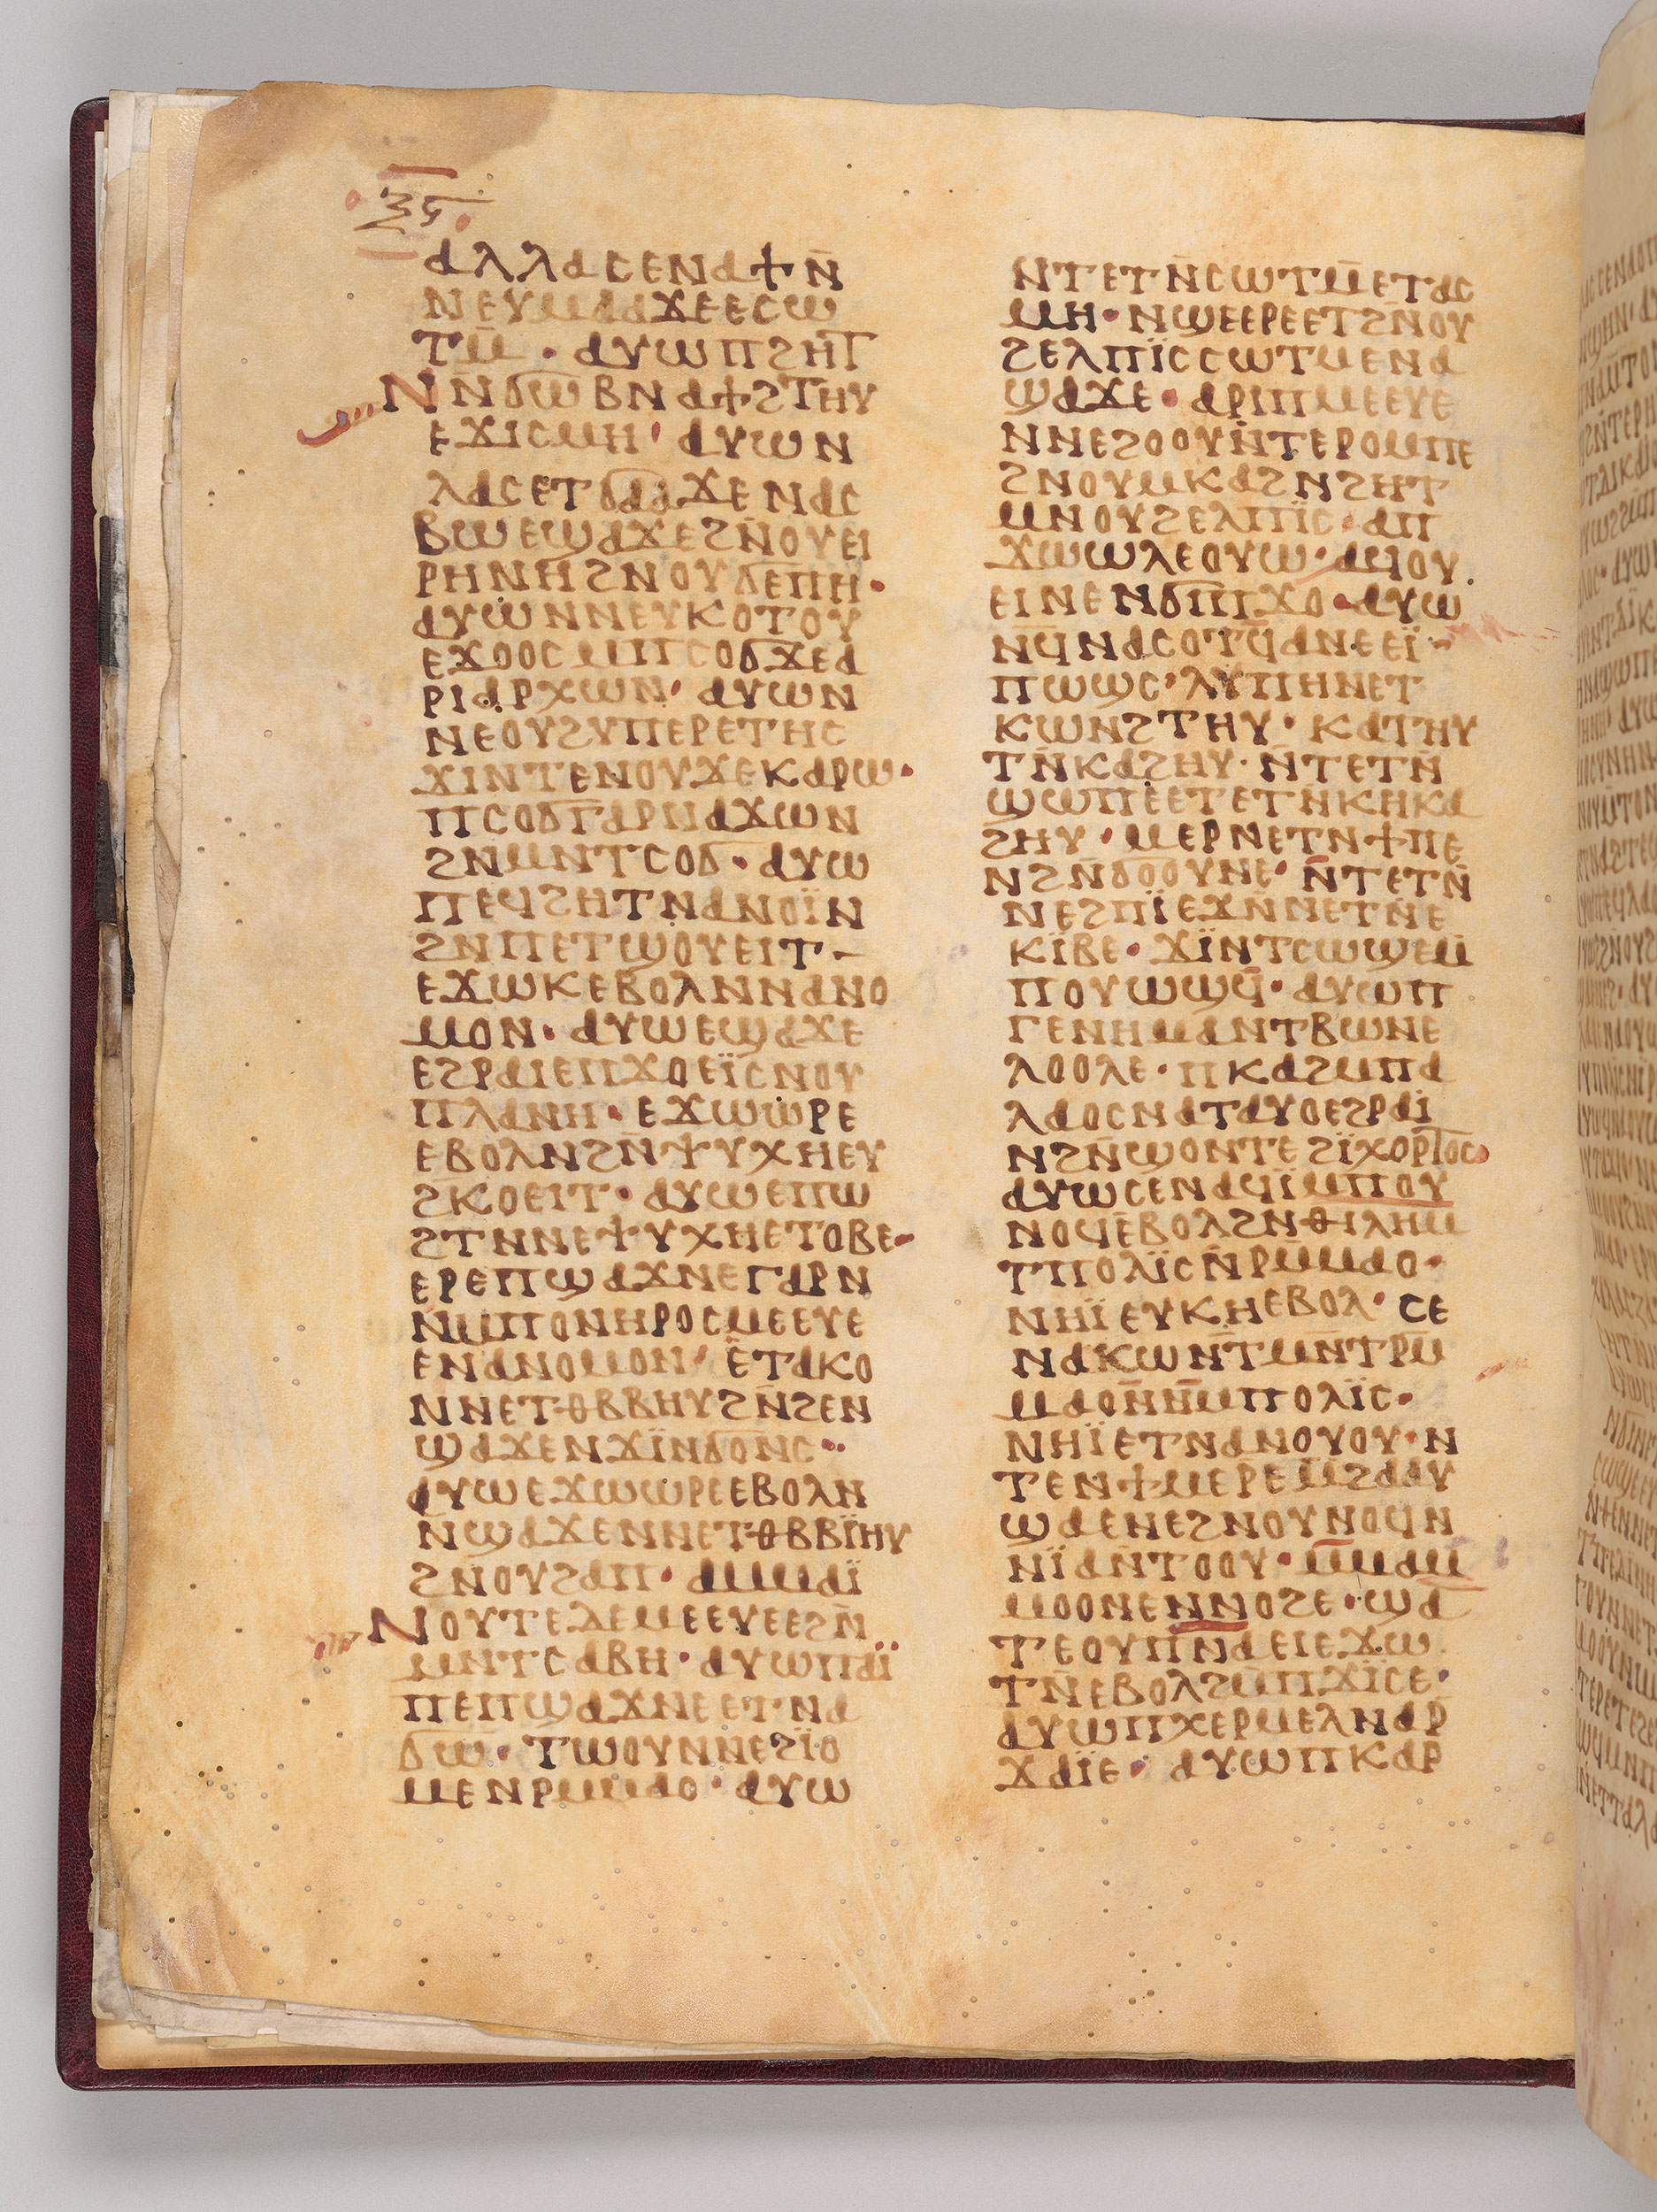 ⲝⲋ
ⲁⲗⲗⲁⲥⲉⲛⲁϯⲛ̄
ⲛⲉⲩⲙⲁⲁϫⲉⲉⲥⲱ
ⲧⲙ̄· ⲁⲩⲱⲡϩⲏⲧ
ⲛⲛ̄ϭⲱⲃⲛⲁϯϩⲧⲏⲩ
ⲉϫⲓⲥⲙⲏ· ⲁⲩⲱⲛ
ⲗⲁⲥⲉⲧϭⲁⲁϫⲉⲛⲁⲥ
ⲃⲱⲉϣⲁϫⲉϩⲛ̄ⲟⲩⲉⲓ
ⲣⲏⲛⲏϩⲛⲟⲩϭⲉⲡⲏ·
ⲁⲩⲱⲛⲛⲉⲩⲕⲟⲧⲟⲩ
ⲉϫⲟⲟⲥⲙⲡⲥⲟϭϫⲉⲁ
ⲣⲓⲁⲣⲭⲱⲛ· ⲁⲩⲱⲛ
ⲛⲉⲟⲩϩⲩⲡⲉⲣⲉⲧⲏⲥ
ϫⲓⲛⲧⲉⲛⲟⲩϫⲉⲕⲁⲣⲱ·
ⲡⲥⲟϭⲅⲁⲣⲛⲁϫⲱⲛ
ϩⲛⲙⲛⲧⲥⲟϭ· ⲁⲩⲱ
ⲡⲉϥϩⲏⲧⲛⲁⲛⲟⲓ̈ⲛ
ϩⲛⲡⲉⲧϣⲟⲩⲉⲓⲧ–
ⲉϫⲱⲕⲉⲃⲟⲗⲛⲛⲁⲛⲟ
ⲙⲟⲛ· ⲁⲩⲱⲉϣⲁϫⲉ
ⲉϩⲣⲁⲓⲉⲡϫⲟⲉⲓ̈ⲥⲛⲟⲩ
ⲡⲗⲁⲛⲏ· ⲉϫⲱⲱⲣⲉ
ⲉⲃⲟⲗⲛϩⲛ̄ⲯⲩⲭⲏⲉⲩ
ϩⲕⲟⲉⲓⲧ· ⲁⲩⲱⲉⲡⲱ
ϩⲧⲛⲛⲉⲯⲩⲭⲏⲉⲧⲟⲃⲉ·
ⲉⲣⲉⲡϣⲁϫⲛⲉⲅⲁⲣⲛ
ⲛⲙⲡⲟⲛⲏⲣⲟⲥⲙⲉⲉⲩⲉ
ⲉⲛⲁⲛⲟⲙⲟⲛ· ⲉⲧⲁⲕⲟ
ⲛⲛⲉⲧⲑⲃⲃⲏⲩϩⲛ̄ϩⲉⲛ
ϣⲁϫⲉⲛϫⲓ̈ⲛϭⲟⲛⲥ··
ⲁⲩⲱⲉϫⲱⲱⲣⲉⲉⲃⲟⲗⲛ
ⲛϣⲁϫⲉⲛⲛⲉⲧⲑⲃⲃⲓ̈ⲏⲩ
ϩⲛⲟⲩϩⲁⲡ· ⲁⲙⲙⲁⲓ̈
ⲛⲟⲩⲧⲉⲗⲉⲙⲉⲉⲩⲉⲉϩⲛ̄
ⲙⲛⲧⲥⲁⲃⲏ· ⲁⲩⲱⲡⲁⲓ̈
ⲡⲉⲡϣⲁϫⲛⲉⲉⲧⲛⲁ
ϭⲱ· ⲧⲱⲟⲩⲛⲛⲉϩⲓ̈ⲟ
ⲙⲉⲛⲣⲙⲙⲁⲟ· ⲁⲩⲱ
ⲛⲧⲉⲧⲛ̄ⲥⲱⲧⲙ̄ⲉⲧⲁⲥ
ⲙⲏ· ⲛϣⲉⲉⲣⲉⲉⲧϩⲛ̄ⲟⲩ
ϩⲉⲗⲡⲓ̈ⲥⲥⲱⲧⲙⲉⲛⲁ
ϣⲁϫⲉ· ⲁⲣⲓⲡⲙⲉⲉⲩⲉ
ⲛⲛⲉϩⲟⲟⲩⲛ̄ⲧⲉⲣⲟⲙⲡⲉ
ϩⲛⲟⲩⲙⲕⲁϩⲛϩⲏⲧ
ⲙⲛⲟⲩϩⲉⲗⲡⲓ̈ⲥ· ⲁⲡ
ϫⲱⲱⲗⲉⲟⲩⲱ· ⲁϥⲟⲩ
ⲉⲓⲛⲉⲛϭⲓⲡϫⲟ· ⲁⲩⲱ
ⲛϥⲛⲁⲥⲟⲧϥ̄ⲁⲛⲉⲉⲓ̈·
ⲡⲱϣⲥ· ⲗⲩⲡⲏⲛⲉⲧ
ⲕⲱⲛϩⲧⲏⲩ· ⲕⲁⲧⲏⲩ
ⲧⲛ̄ⲕⲁϩⲏⲩ· ⲛ̄ⲧⲉⲧⲛ̄
ϣⲱⲡⲉⲉⲧⲉⲧⲛⲕⲏⲕⲁ
ϩⲏⲩ· ⲙⲉⲣⲛⲉⲧⲛϯⲡⲉ
ⲛϩⲛ̄ϭⲟⲟⲩⲛⲉ· ⲛ̄ⲧⲉⲧⲛ̄
ⲛⲉϩⲡⲓ̈ⲉϫⲛⲛⲉⲧⲛ̄ⲉ
ⲕⲓ̈ⲃⲉ· ϫⲓ̈ⲛⲧⲥⲱϣⲉⲙ̄
ⲡⲟⲩⲱϣϥ̄· ⲁⲩⲱⲡ
ⲅⲉⲛⲏⲙⲁⲛⲧⲃⲱⲛⲉ
ⲗⲟⲟⲗⲉ· ⲡⲕⲁϩⲙⲡⲁ
ⲗⲁⲟⲥⲛⲁⲧⲁⲩⲟⲉϩⲣⲁⲓ̈
ⲛϩⲛ̄ϣⲟⲛⲧⲉϩⲓ̈ⲭⲟⲣⲧⲟⲥ·
ⲁⲩⲱⲥⲉⲛⲁϥⲓ̈ⲙⲡⲟⲩ
ⲛⲟϥⲉⲃⲟⲗϩⲛⲑⲓⲗⲏⲙ̄
ⲧⲡⲟⲗⲓ̈ⲥⲛ̄ⲣⲙ̄ⲙⲁⲟ·
ⲛⲏⲓ̈ⲉⲩⲕⲏⲉⲃⲟⲗ· ⲥⲉ
ⲛⲁⲕⲱⲛ̄ⲧⲙⲛⲧⲣⲙ̄
ⲙⲁⲟⲛ̄ⲛ̄ⲙⲡⲟⲗⲓ̈ⲥ·
ⲛⲏⲓ̈ⲉⲧⲛⲁⲛⲟⲩⲟⲩ· ⲛ
ⲧⲉⲛϯⲙⲉⲣⲉⲙ̄ϩⲁⲁⲩ
ϣⲁⲉⲛⲉϩⲛⲟⲩⲛⲟϥⲛ
ⲛⲓ̈ⲁⲛ̄ⲧⲟⲟⲩ· ⲙ̄ⲙⲁⲙ̄
ⲙⲟⲟⲛⲉⲛⲛⲟϩⲉ· ϣⲁ
ⲧⲉⲟⲩⲡⲛ̄ⲁⲉⲓⲉϫⲱ
ⲧⲛ̄ⲉⲃⲟⲗϩⲙ̄ⲡϫⲓ̈ⲥⲉ·
ⲁⲩⲱⲡⲭⲉⲣⲙⲉⲗⲛⲁⲣ̄
ϫⲁⲓ̈ⲉ· ⲁⲩⲱⲡⲕⲁⲣ